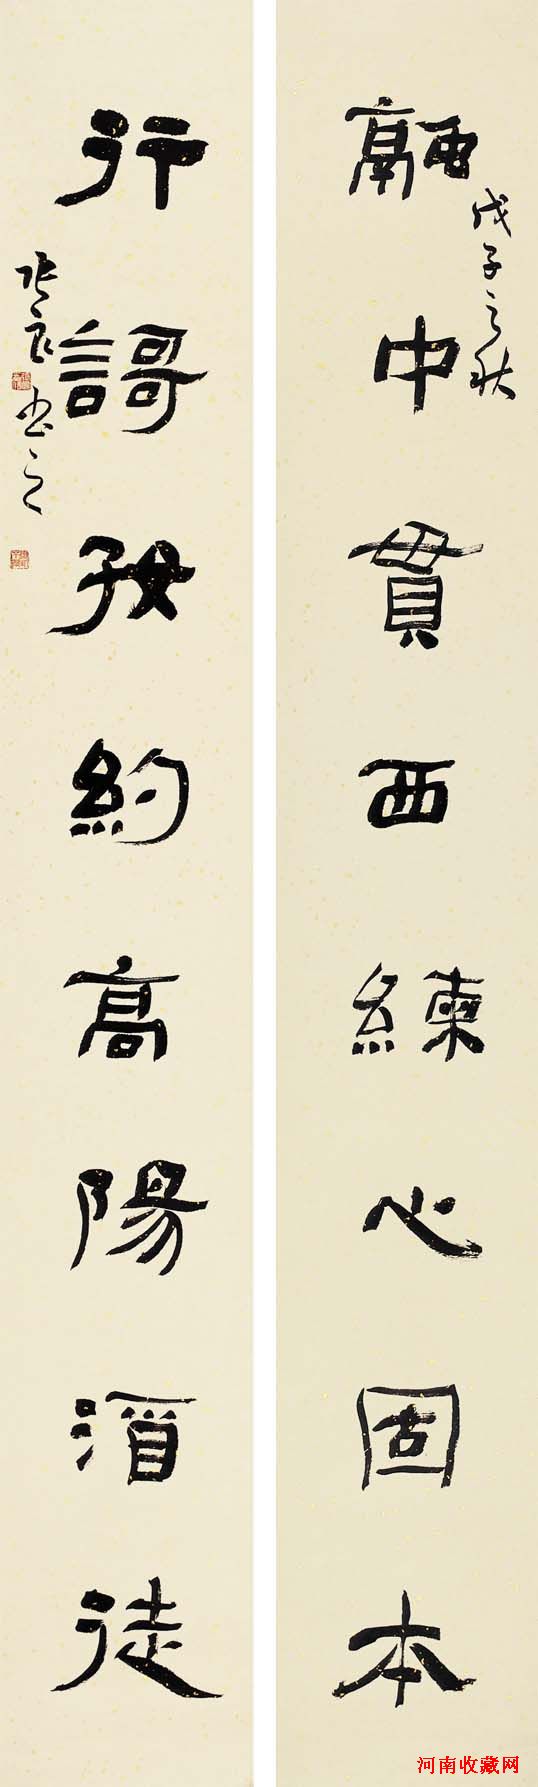 戊子之秋
融中貫西練心固本
行謌好約高陽酒徒
張良書之
河南收藏网